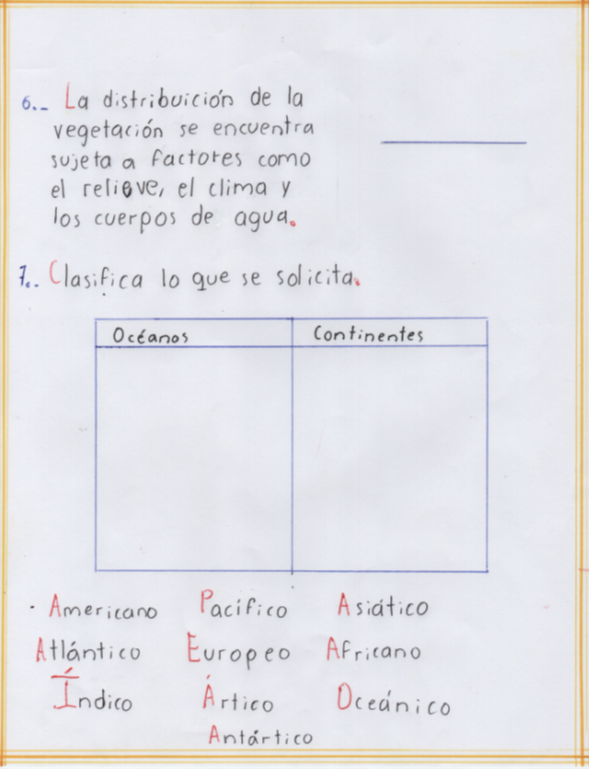 6.- La distribuición de la
vegetación se encuentra
sujeta a factores como
el relieve, el clima y
los cuerpos de agua.
7.- Clasifica lo que se solicita.
Océanos Continentes
Americano Pacífico Asiático
Atlántico Europeo Africano
Índico Ártico Oceánico
Antártico